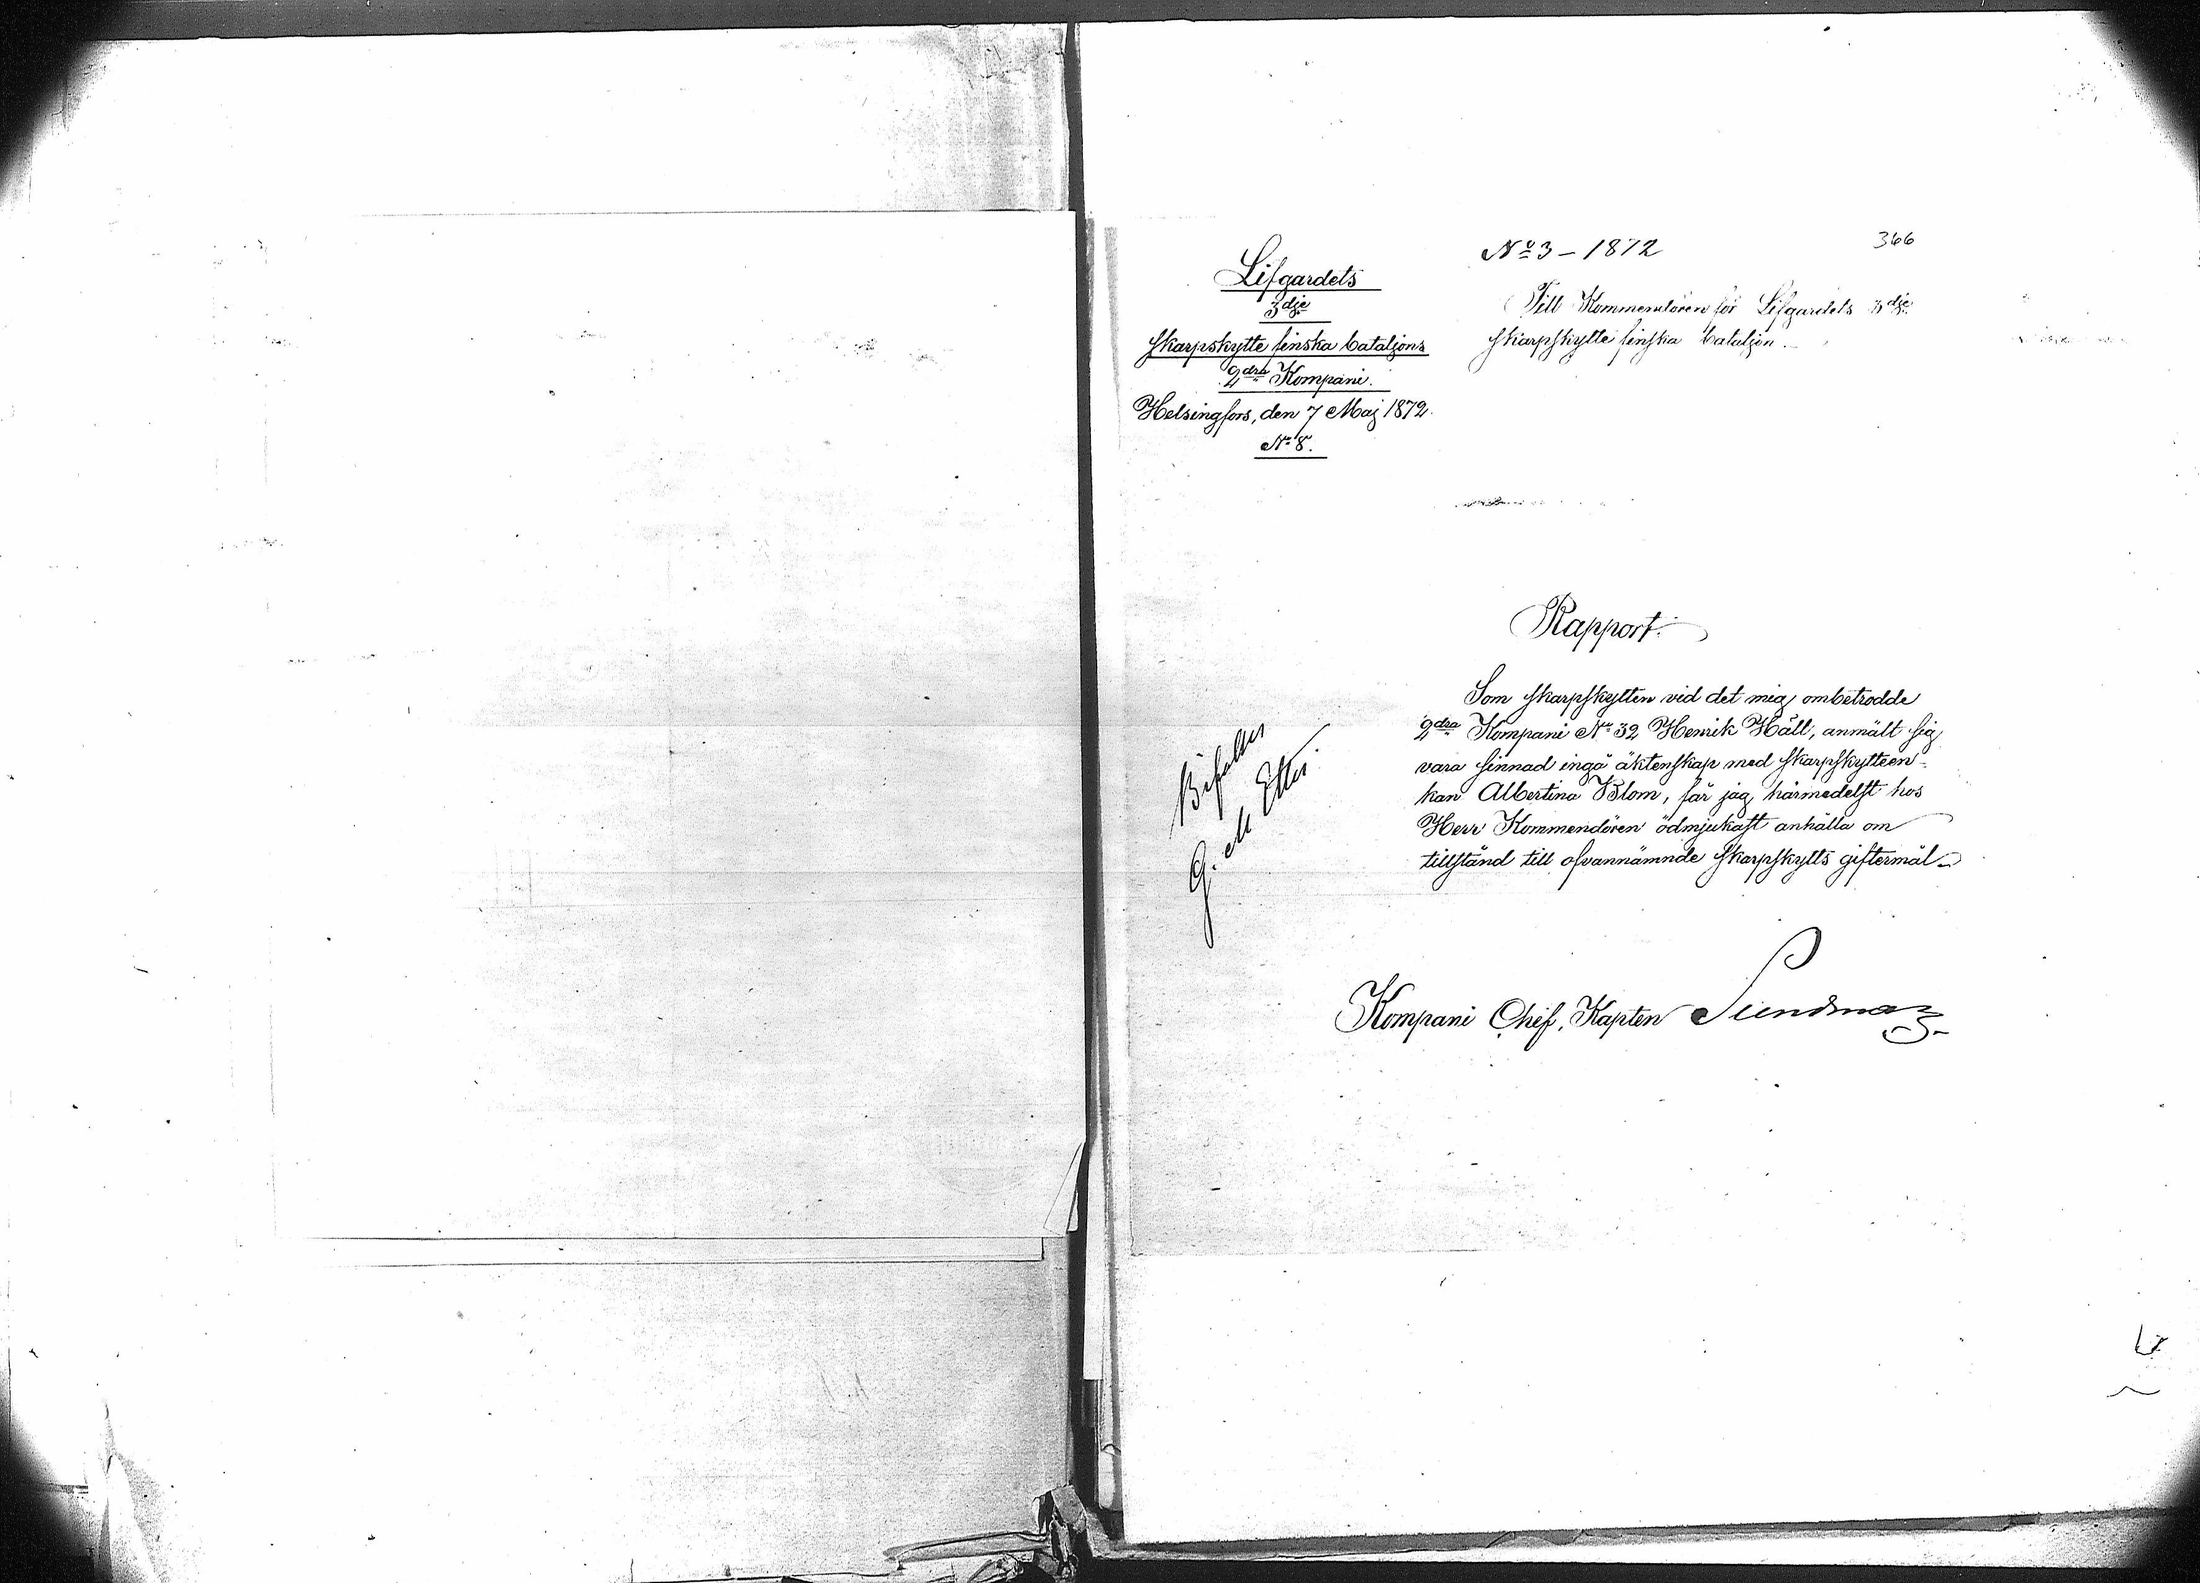 366
Lifgardets
3dje
Skarpskytte finska bataljons
2dra Kompani.
Helsingfors, den 7 Maj 1872.
No 8.
No 3 – 1872
Till Kommendören för Lifgardets 3dje
Skarpskytte finska bataljon.
Rapport.
Som skarpskytten vid det mig ombetrodde
2dra Kompani No 32 Henrik Häll, anmält sig
vara sinnad ingå äktenskap med skarpskytteen-
kan Albertina Blom, får jag härmedelst hos
Herr Kommendören ödmjukast anhålla om
tillstånd till ofvannämnde skarpskytts giftermål.
Bifalles
G. Etter
Kompani Chef, Kapten Sundman